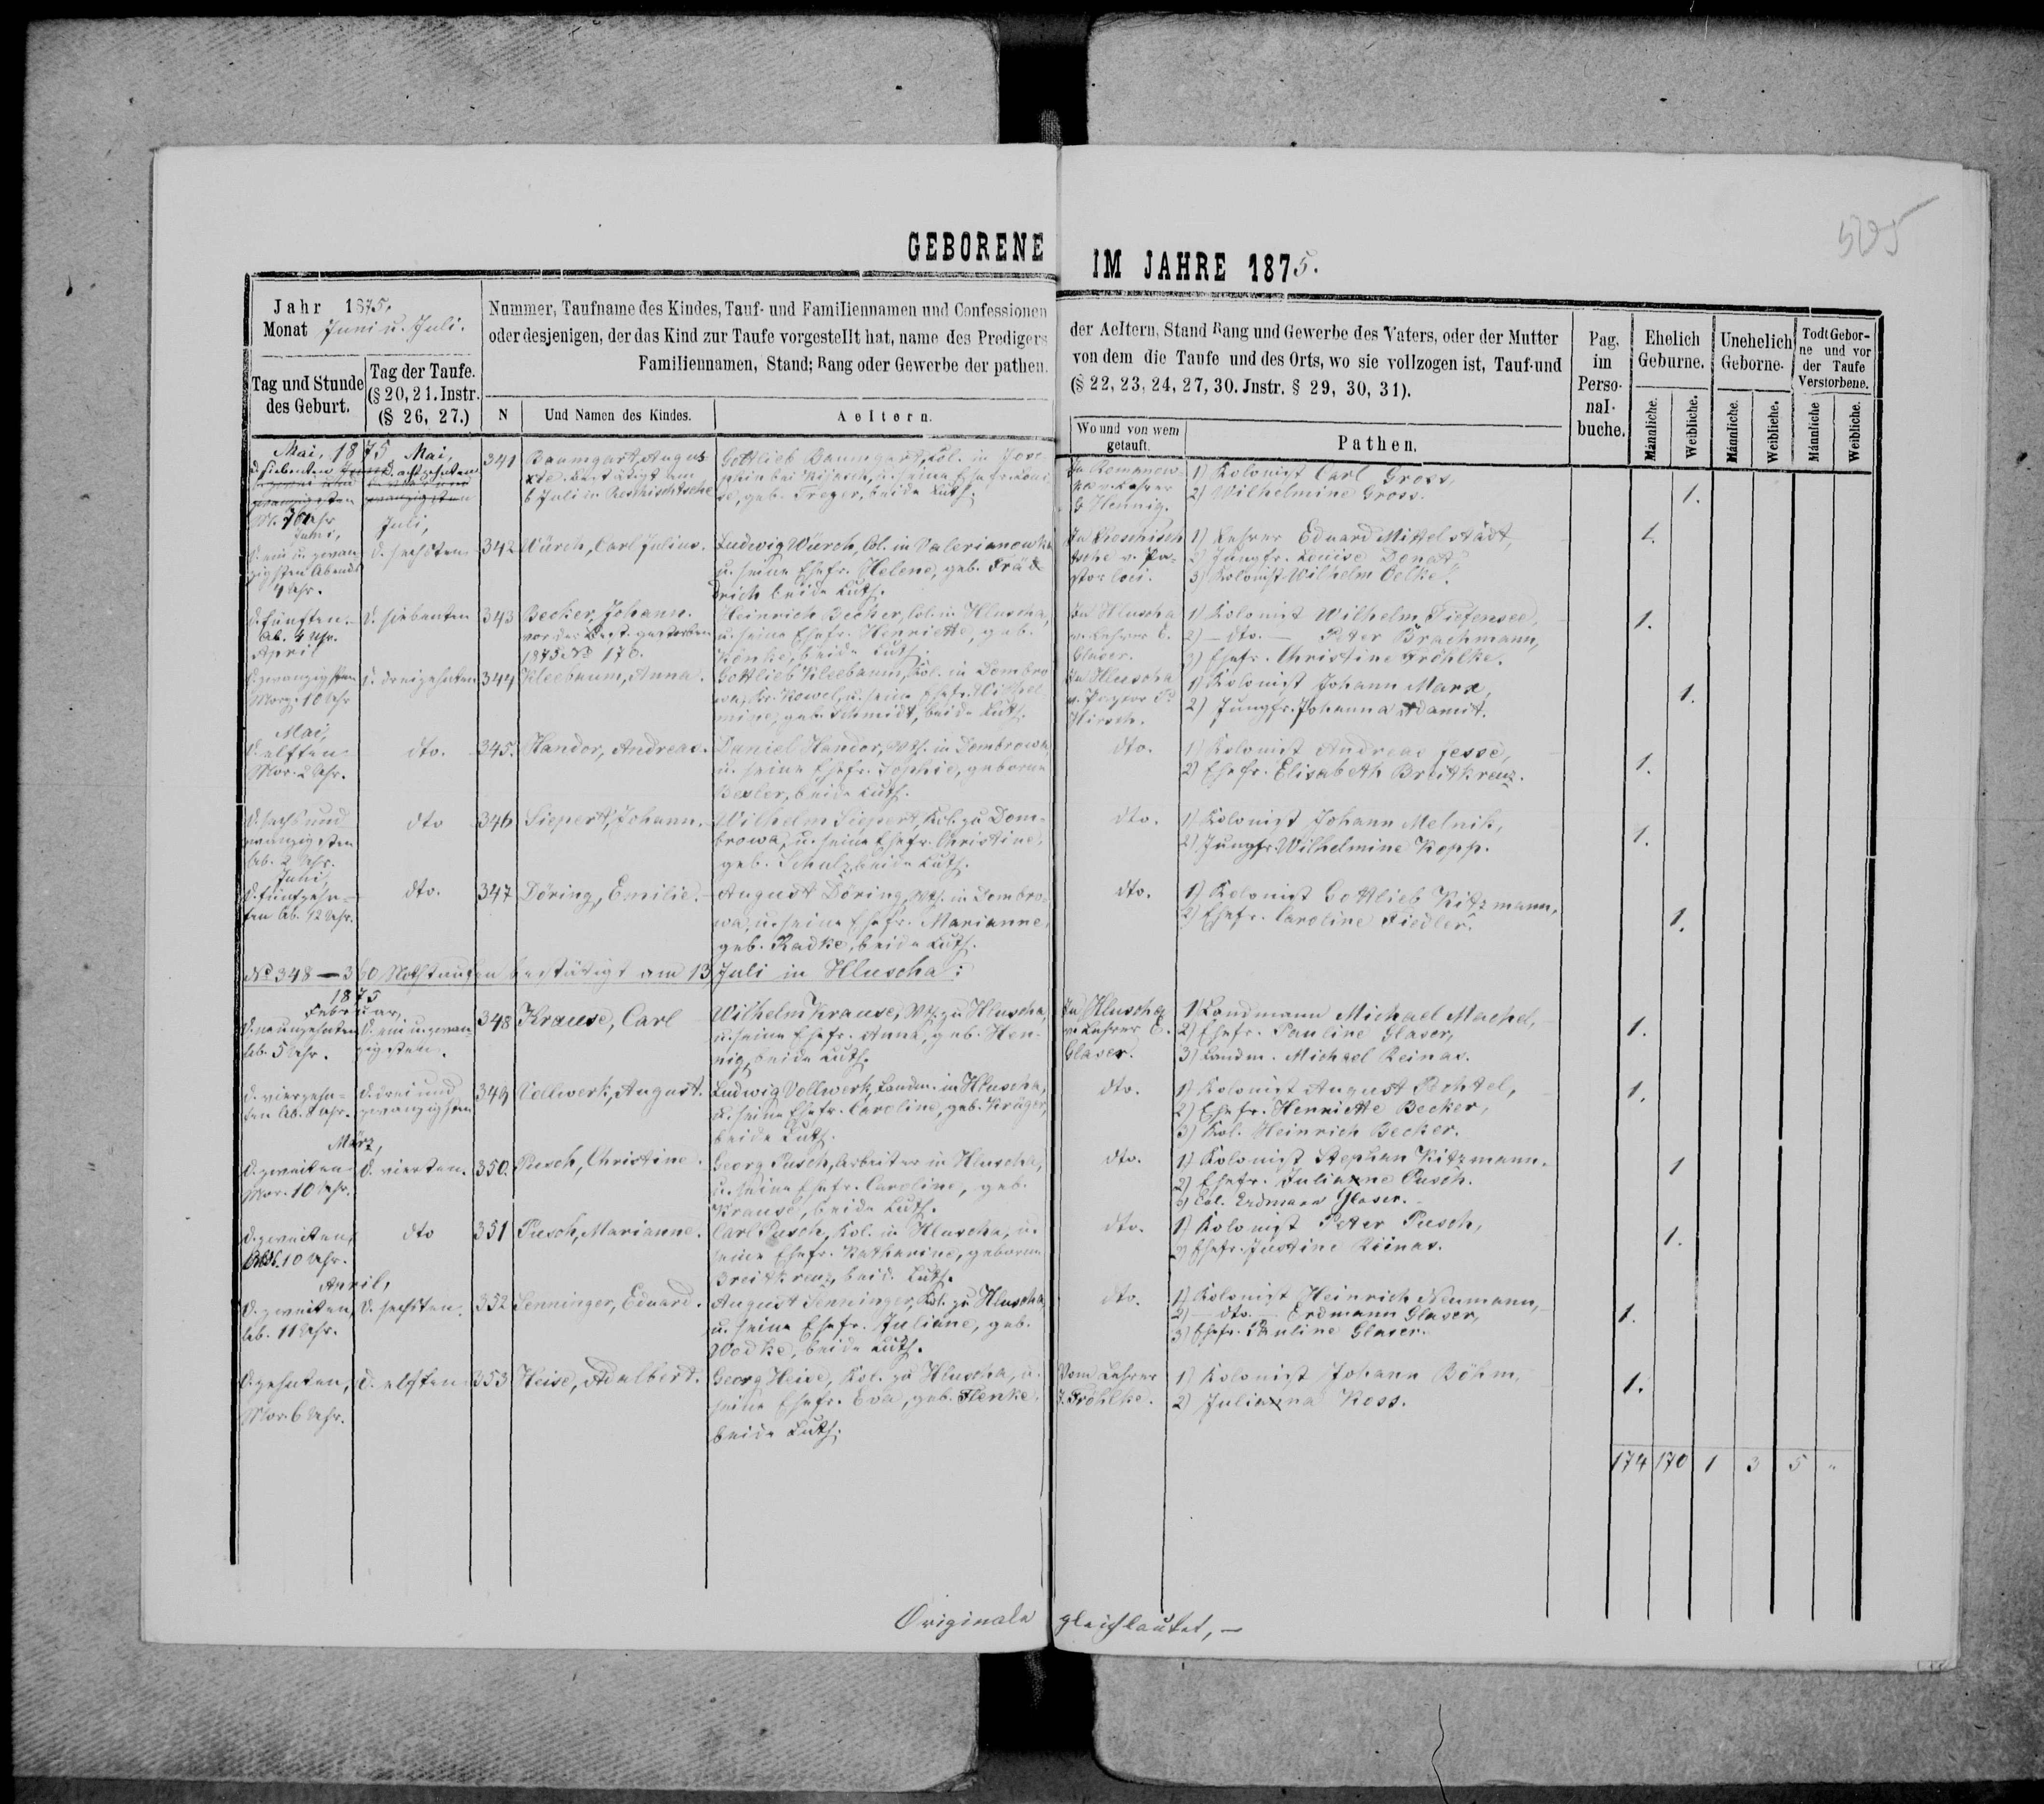 GEBORENE IM JAHRE 1875.
505
Jahr 1875.
Monat Juni u. Juli.
Nummer, Taufname des Kindes, Tauf- und Familiennamen und Confessionen
oder desjenigen, der das Kind zur Taufe vorgestellt hat, name des Predigers
Familiennamen, Stand; Rang oder Gewerbe der pathen.
der Aeltern, Stand Rang und Gewerbe des Vaters, oder der Mutter
von dem die Taufe und des Orts, wo sie vollzogen ist, Tauf-und
(§ 22, 23, 24, 27, 30. Jnstr. § 29, 30, 31).
Tag und Stunde
des Geburt.
Tag der Taufe.
(§ 20, 21. Instr.
(§ 26, 27.)
N
Und Namen des Kindes.
Aeltern.
Wo und von wem
getauft.
Pathen.
Pag.
im
Perso-
nal-
buche.
Ehelich
Geburne.
Unehelich
Geborne.
Todt Gebor-
ne und vor
der Taufe
Verstorbene.
Männliche.
Weibliche.
Männliche.
Weibliche.
Männliche
Weibliche.
Mai, 1875 Mai,
d. siebenten
d. achtzehnten
341
Baumgart, Augus-
te. Bestätigt am
6 Juli in Roschischtsche
Gottlieb Baumgart, Kol. in Jose-
phin bei Kisrsch, u. seine Ehefr. Loui-
se, geb. Treger, beide Luth.
In Romanow-
ka v. Lehrer
G Hennig.
1) Kolonist Carl Gross,
2) Wilhelmine Gross.
1.
Juni,
d. ein u. zwan-
zigsten Abends
4 Uhr.
Juli,
d. sechsten
342
Würch, Carl Julius.
Ludwig Würch, Col. in Valerianowka
u. seine Ehefr. Helene, geb. Fräd-
rich beide Luth.
In Roschisch
tsche v. Pa-
stor loci.
1) Lehrer Eduard Mittelstädt,
2) Jungfr. Louise Donat,
3) Kolonist Wilhelm Oelke.
1.
d. fünften
Ab. 4 Uhr.
d. siebenten
343
Becker, Johann.
vor der Best. gestorben
1875 No 176.
Heinrich Becker, Col. in Hluscha,
u. seine Ehefr. Henriette, geb.
Könke, beide Luth.
In Hluscha
v. Lehrer E.
Glaser.
1) Kolonist Wilhelm Tiefensee,
2) — dto. — Peter Brachmann,
3) Ehefr. Christine Fröhlke.
1.
April
d. zwanzigsten
Morg. 10 Uhr
d. dreizehnten
344
Kleebaum, Anna.
Gottlieb Kleebaum, Kol. in Dombro
wa, Kr. Kowel, u. seine Ehefr. Wilhel-
mine, geb. Schmidt, beide Luth.
In Hluscha
v. Pastor
Kirsch.
1) Kolonist Johann Marx,
2) Jungfr. Johanna Adamit.
1.
Mai,
d. elften
Mor. 2 Uhr.
dto.
345.
Handor, Andreas.
Daniel Handor, Wth. in Dombrowa
u. seine Ehefr. Sophie, geborne
Bexler, beide Luth.
dto.
1) Kolonist Andreas Jesse,
2) Ehefr. Elisabeth Breitkreuz.
1.
d. sechs und
zwanzigsten
Ab. 2 Uhr.
dto
346
Siepert, Johann.
Wilhelm Siepert, Kol. zu Dom-
browa, u. seine Ehefr. Christine,
geb. Schulz, beide Luth.
dto.
1) Kolonist Johann Melnik,
2) Jungfr. Wilhelmine Kopp.
1.
Juni,
d. fünfzehn-
ten Ab. 12 Uhr.
dto.
347
Döring, Emilie.
August Döring, Wth. in Dombro-
wa, u. seine Ehefr. Marianne,
geb. Radke, beide Luth.
dto.
1) Kolonist Gottlieb Kitzmann,
2) Ehefr. Caroline Fiedler.
1.
No 348 — 360 Nothtaufen bestätigt am 13 Juli in Hluscha:
1875
Februar,
d. neunzehnten
Ab. 5 Uhr.
d. ein u. zwan-
zigsten.
348
Krause, Carl
Wilhelm Krause, Wth. zu Hluscha,
u. seine Ehefr. Anna, geb. Hen-
nig, beide Luth.
In Hluscha
v. Lehrer E.
Glaser.
1) Landmann Michael Machel,
2) Ehefr. Pauline Glaser,
3) Landm. Michael Reinas.
1.
d. vierzehn-
ten Ab. 1 Uhr.
d. drei und
zwanzigsten
349
Vollwerk, August.
Ludwig Vollwerk, Landm. in Hluscha,
u. seine Ehefr. Caroline, geb. Krüger,
beide Luth.
dto.
1) Kolonist August Pohtel,
2) Ehefr. Henriette Becker,
3) Kol. Heinrich Becker.
1.
März,
d. zweiten
Mor. 10 Uhr.
d. vierten.
350.
Pusch, Christine.
Georg Pusch, Arbeiter in Hluscha,
u. seine Ehefr. Caroline, geb.
Krause, beide Luth.
dto.
1) Kolonist Stephan Kitzmann.
2) Ehefr. Julianne Pusch.
3) Col. Erdmann Glaser.
1
d. zweiten,
Abds. 10 Uhr.
dto
351
Pusch, Marianne.
Carl Pusch, Kol. in Hluscha, u.
seine Ehefr. Katharine, geborne
Breitkreuz, beide Luth.
dto.
1) Kolonist Peter Pusch,
2) Ehefr. Justine Reinas.
1.
April,
d. zweiten,
Ab. 11 Uhr.
d. sechsten.
352
Senninger, Eduard.
August Senninger, Kol. zu Hluscha,
u. seine Ehefr. Juliane, geb.
Wodke, beide Luth.
dto.
1) Kolonist Heinrich Neumann,
2) — dto. — Erdmann Glaser,
3) Ehefr. Pauline Glaser.
1.
d. zehnten,
Mor. 6 Uhr.
d. elften
353
Heise, Adalbert.
Georg Heise, Kol. zu Hluscha, u.
seine Ehefr. Eva, geb. Henke.
beide Luth.
Vom Lehrer
J. Fröhlke.
1) Kolonist Johann Böhm,
2) Julianna Ross.
1.
174 170 1 3 5 "
Originale gleichlautet, —